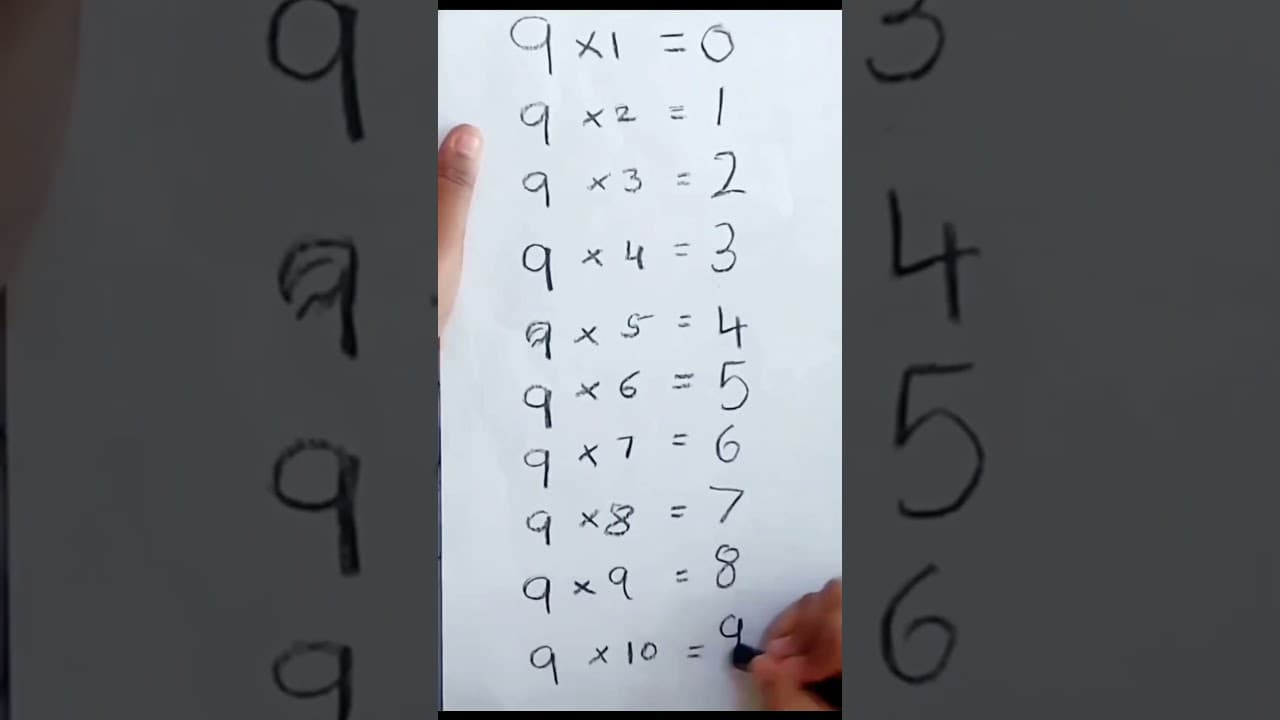 9 × 1 = 0
9 × 2 = 1
9 × 3 = 2
9 × 4 = 3
9 × 5 = 4
9 × 6 = 5
9 × 7 = 6
9 × 8 = 7
9 × 9 = 8
9 × 10 = 9